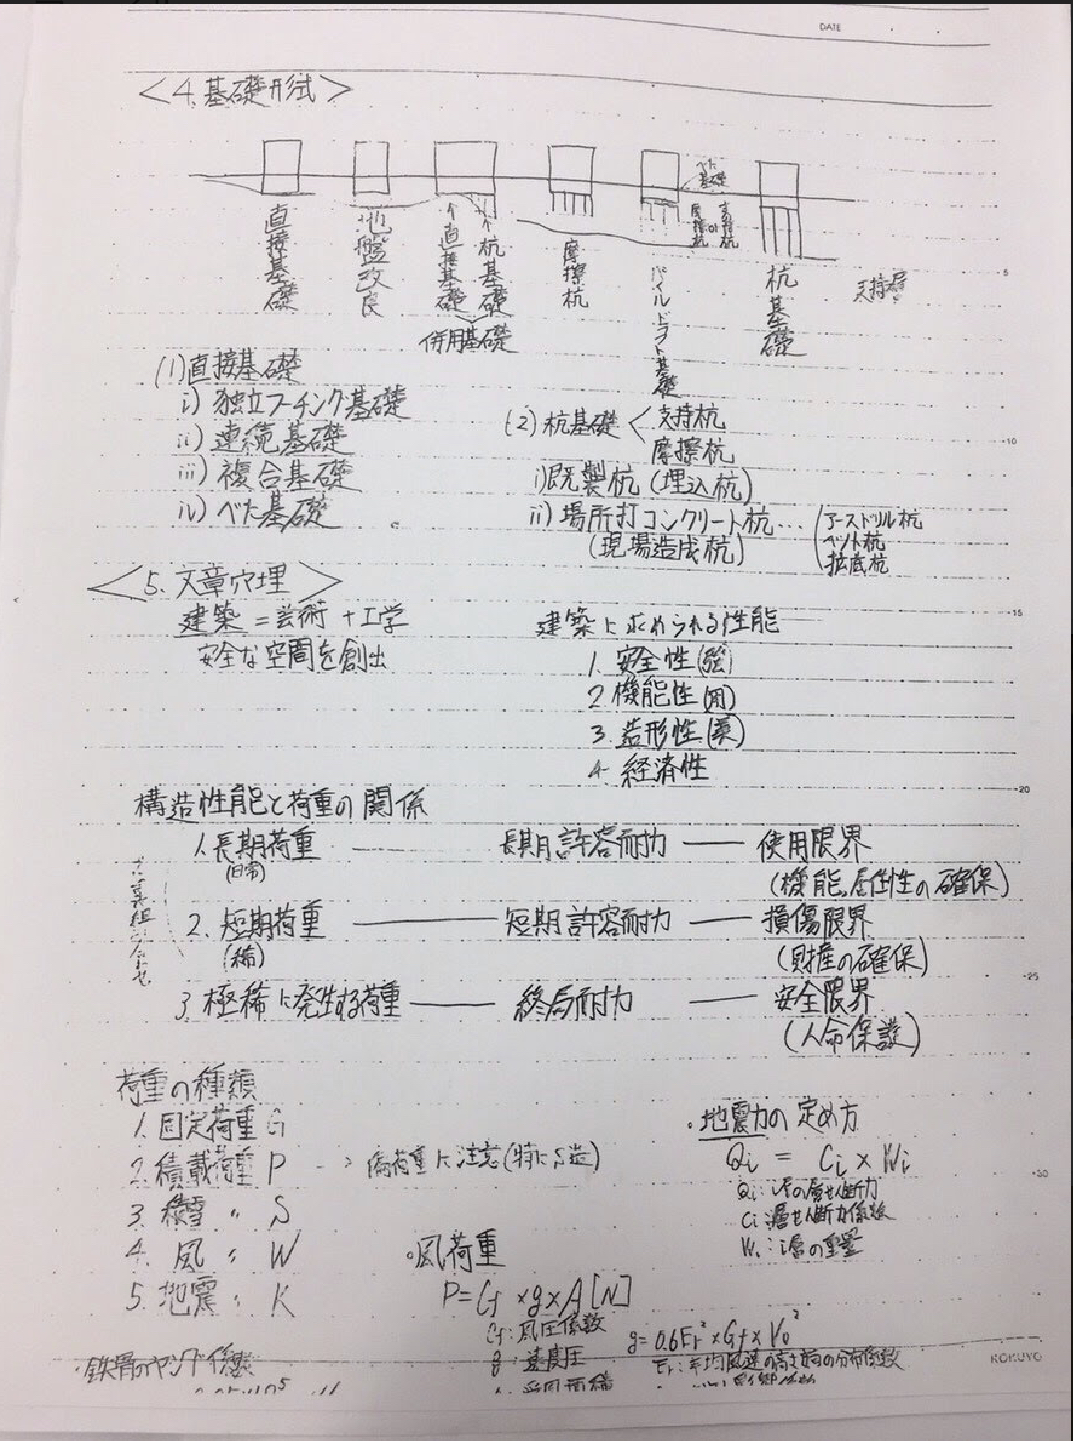 DATE
<4. 基礎形式>
直接基礎
地盤改良
直接基礎
杭基礎
併用基礎
摩擦杭
べた基礎
摩擦杭 or 支持杭
パイルドラフト基礎
杭基礎
支持層
(1)直接基礎
i) 独立フーチング基礎
ii) 連続基礎
iii) 複合基礎
iv) べた基礎
(2) 杭基礎 < 支持杭
摩擦杭
i)既製杭 (埋込杭)
ii) 場所打コンクリート杭…
(現場造成杭)
アースドリル杭
拡底杭
<5. 文章穴埋>
建築 = 芸術 + 工学
安全な空間を創出
建築に求められる性能
1. 安全性(強)
2. 機能性(用)
3. 造形性(美)
4. 経済性
構造性能と荷重の関係
1. 長期荷重 — 長期許容耐力 — 使用限界
(日常)
(機能、居住性の確保)
2. 短期荷重 — 短期許容耐力 — 損傷限界
(稀)
(財産の確保)
3. 極稀に発生する荷重 — 終局耐力 — 安全限界
(人命保護)
荷重の種類
1. 固定荷重 G
2. 積載荷重 P --> 偏荷重に注意(特にS造)
3. 積雪 〃 S
4. 風 〃 W
5. 地震 〃 K
・地震力の定め方
Qi = Ci × Wi
Qi : i層の層せん断力
Ci : 層せん断力係数
Wi : i層の重量
・風荷重
P = Cf × q × A [N]
Cf : 風圧係数
q : 速度圧
q = 0.6Er² × Gf × V₀²
Er : 平均風速の高さ方向の分布係数
・鉄骨のヤング係数
KOKUYO
5
10
15
20
25
30